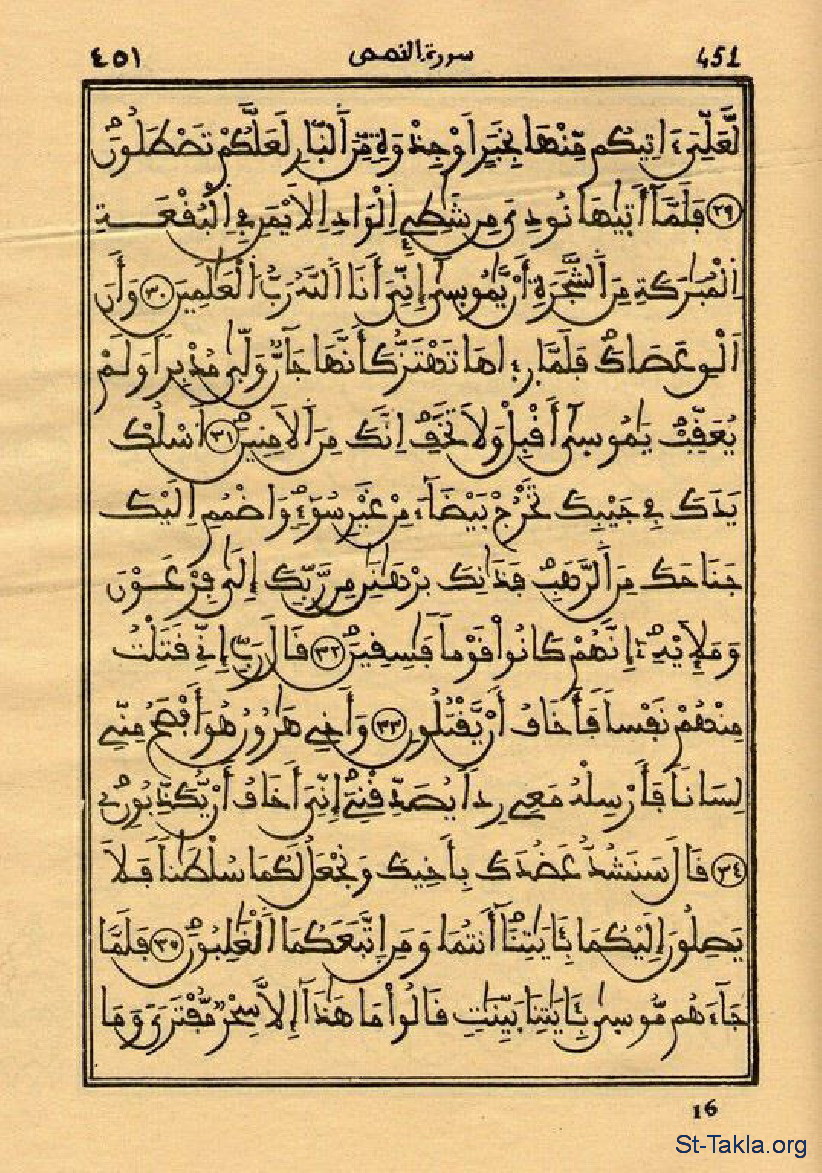 ٤٥١ سورة القصص 451
لَّعَلِّىَ ءَاتِيكُم مِّنْهَا بِخَبَرٍ اَوْ جِذْوَةٍ مِّنَ اَ۬لنّ۪ارِ لَعَلَّكُمْ تَصْطَلُونَۖ
٢٩ فَلَمَّآ أَت۪يٰهَا نُودِىَ مِن شَٰطِےِٕ اِ۬لْوَادِ اِ۬لَايْمَنِ فِے اِ۬لْبُقْعَةِ
اِ۬لْمُبَٰرَكَةِ مِنَ اَ۬لشَّجَرَةِ أَنْ يَّٰمُوس۪ىٰٓ إِنِّىَ أَنَا اَ۬للَّهُ رَبُّ اُ۬لْعَٰلَمِينَ ٣٠ وَأَنَ
اَلْقِ عَصَاكَۖ فَلَمَّا ر۪ء۪اهَا تَهْتَزُّ كَأَنَّهَا جَآنٌّ وَلّ۪ىٰ مُدْبِراً وَلَمْ
يُعَقِّبْۖ يَٰمُوس۪ىٰٓ أَقْبِلْ وَلَا تَخَفِۖ اِنَّكَ مِنَ اَ۬لَامِنِينَۖ ٣١ اَ۟سْلُكْ
يَدَكَ فِے جَيْبِكَ تَخْرُجْ بَيْضَآءَ مِنْ غَيْرِ سُوٓءٍۖ وَاضْمُمِ اِلَيْكَ
جَنَاحَكَ مِنَ اَ۬لرَّهَبِۖ فَذَٰنِكَ بُرْهَٰنَٰنِ مِن رَّبِّكَ إِلَىٰ فِرْعَوْنَ
وَمَلَإِيْهِۦٓۖ إِنَّهُمْ كَانُواْ قَوْماً فَٰسِقِينَۖ ٣٢ قَالَ رَبِّ إِنِّے قَتَلْتُ
مِنْهُمْ نَفْساً فَأَخَافُ أَنْ يَّقْتُلُونِۖ ٣٣ وَأَخِے هَٰرُونُ هُوَ أَفْصَحُ مِنِّے
لِسَاناً فَأَرْسِلْهُ مَعِے رِداً يُصَدِّقْنِےٓۖ إِنِّىَ أَخَافُ أَنْ يُّكَذِّبُونِۖۦ
٣٤ قَالَ سَنَشُدُّ عَضُدَكَ بِأَخِيكَ وَنَجْعَلُ لَكُمَا سُلْطَٰناً فَلَا
يَصِلُونَ إِلَيْكُمَا بِـَٔايَٰتِنَآۖ أَنتُمَا وَمَنِ اِ۪تَّبَعَكُمَا اَ۬لْغَٰلِبُونَۖ ٣٥ فَلَمَّا
جَآءَهُم مُّوس۪ىٰ بِـَٔايَٰتِنَا بَيِّنَٰتٍ قَالُواْ مَا هَٰذَآ إِلَّا سِحْرٌ مُّفْتَرىً وَمَا
16
St-Takla.org